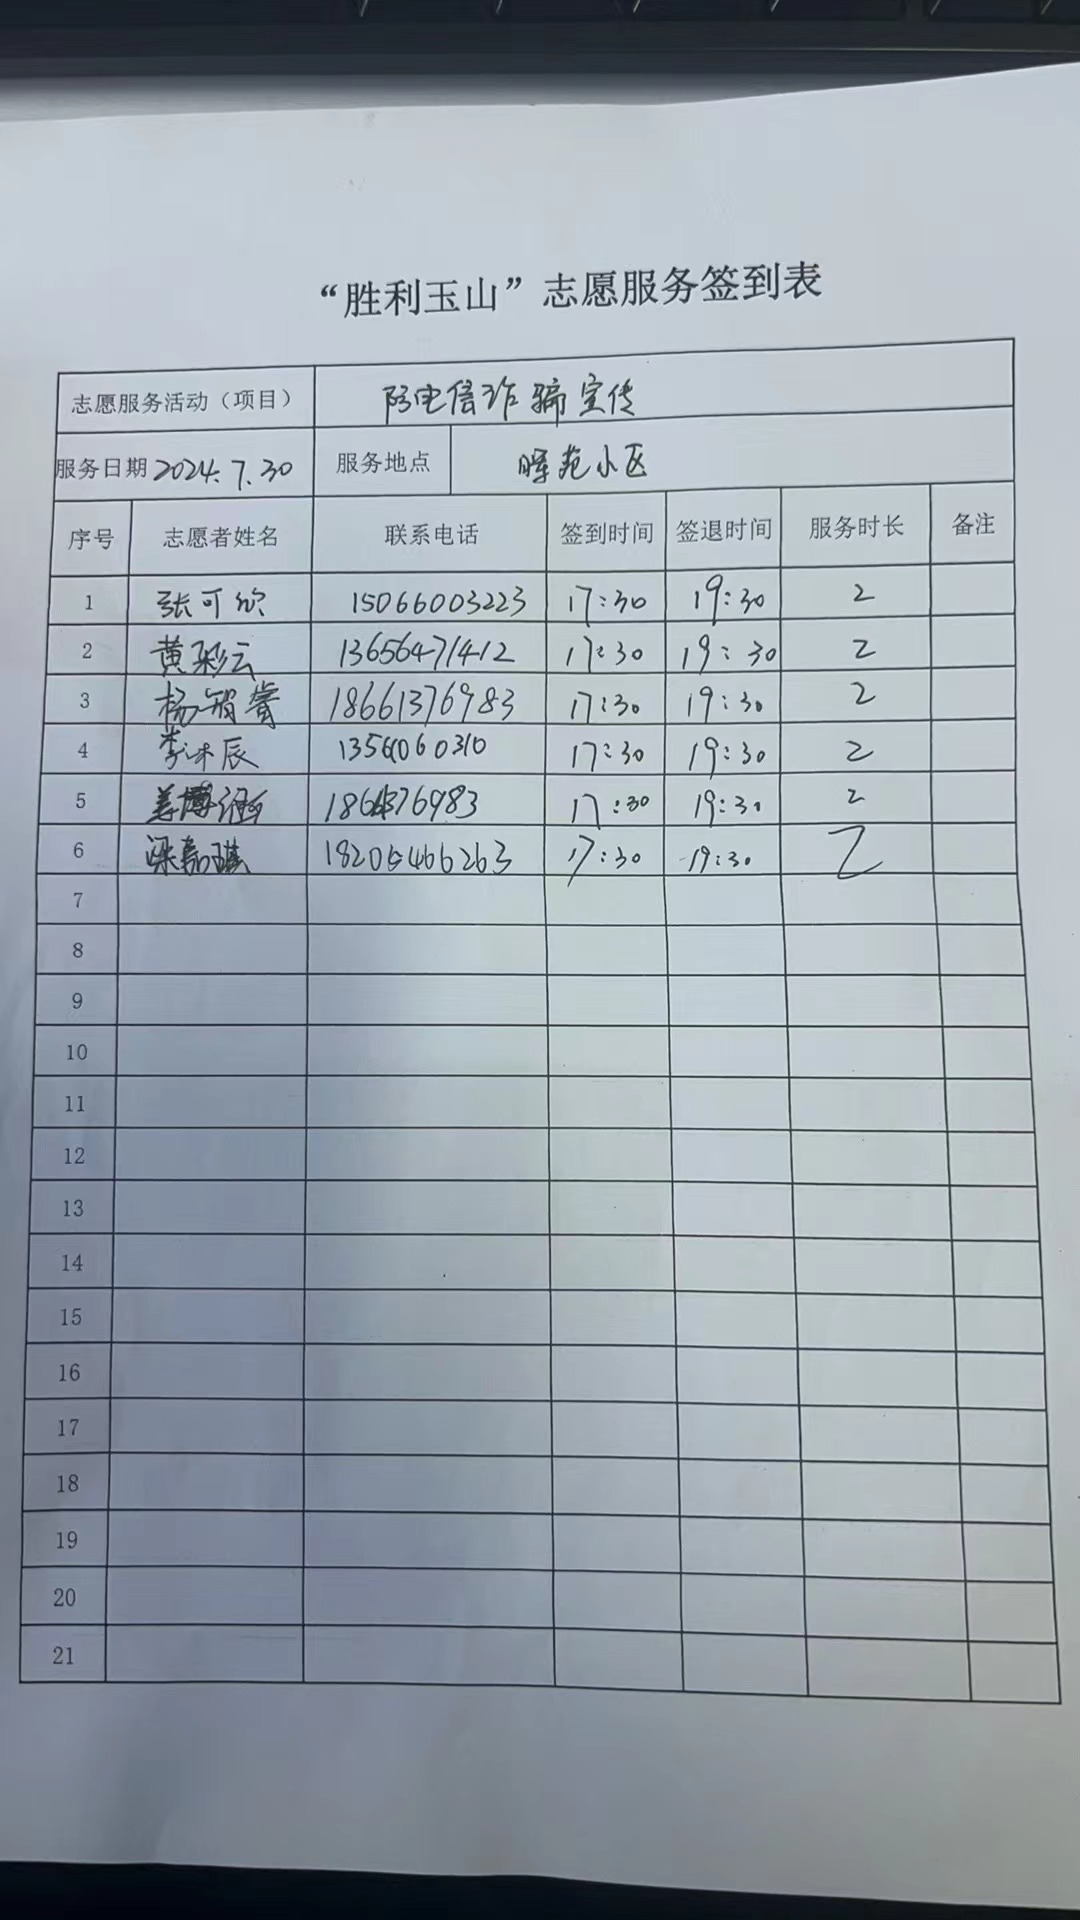 “胜利玉山”志愿服务签到表
志愿服务活动（项目） 防电信诈骗宣传
服务日期 2024.7.30 服务地点 晖苑小区
序号 志愿者姓名 联系电话 签到时间 签退时间 服务时长 备注
1 张可欣 15066003223 17:30 19:30 2
2 黄彩云 13656471412 17:30 19:30 2
3 杨智睿 18661376983 17:30 19:30 2
4 李沐辰 17:30 19:30 2
5 姜博涵 17:30 19:30 2
6 梁嘉琪 18205466263 17:30 19:30 2
7
8
9
10
11
12
13
14
15
16
17
18
19
20
21